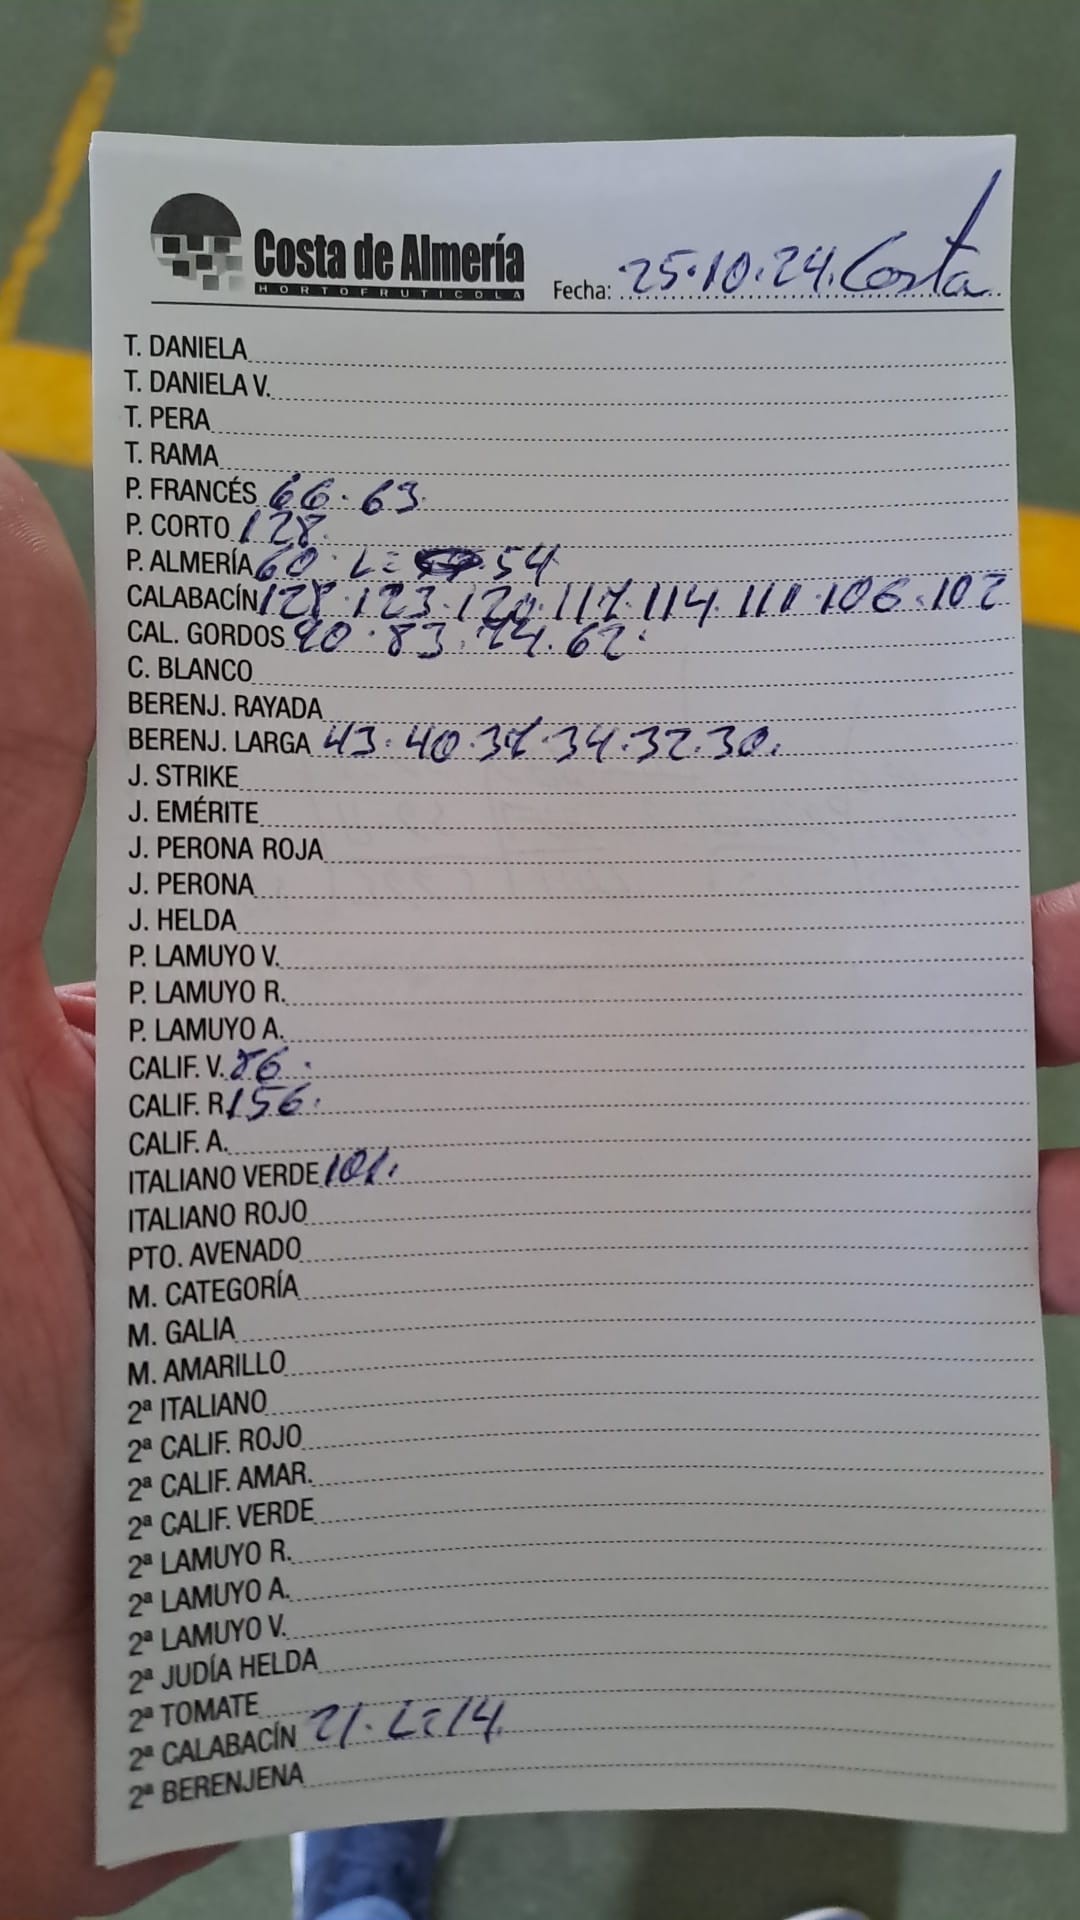 Costa de Almería
HORTOFRUTICOLA
Fecha: 25.10.24. Costa
T. DANIELA
T. DANIELA V.
T. PERA
T. RAMA
P. FRANCÉS 66. 63.
P. CORTO 128.
P. ALMERÍA 60. L= 54
CALABACÍN 128. 123. 120. 117. 114. 111. 106. 102
CAL. GORDOS 90. 83. 74. 62.
C. BLANCO
BERENJ. RAYADA
BERENJ. LARGA 43. 40. 37. 34. 32. 30.
J. STRIKE
J. EMÉRITE
J. PERONA ROJA
J. PERONA
J. HELDA
P. LAMUYO V.
P. LAMUYO R.
P. LAMUYO A.
CALIF. V. 86.
CALIF. R. 156.
CALIF. A.
ITALIANO VERDE 101.
ITALIANO ROJO
PTO. AVENADO
M. CATEGORÍA
M. GALIA
M. AMARILLO
2ª ITALIANO
2ª CALIF. ROJO
2ª CALIF. AMAR.
2ª CALIF. VERDE
2ª LAMUYO R.
2ª LAMUYO A.
2ª LAMUYO V.
2ª JUDÍA HELDA
2ª TOMATE
2ª CALABACÍN 21. L=14.
2ª BERENJENA